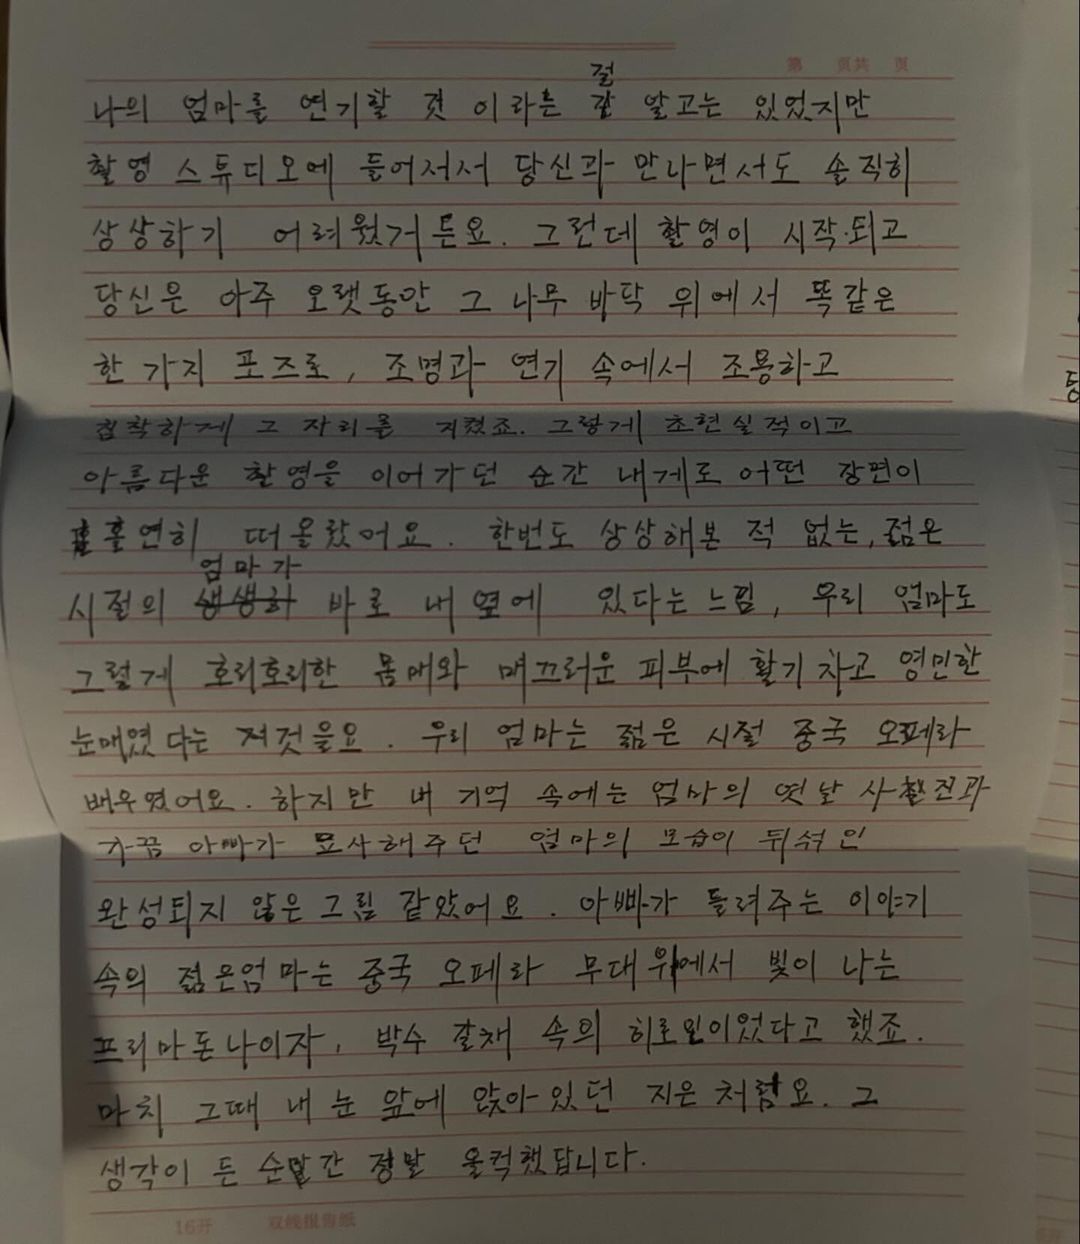 第 页共 页
나의 엄마를 연기할 것 이라는 걸 잘 알고는 있었지만
촬영 스튜디오에 들어서서 당신과 만나면서도 솔직히
상상하기 어려웠거든요. 그런데 촬영이 시작되고
당신은 아주 오랫동안 그 나무 바닥 위에서 똑같은
한 가지 포즈로, 조명과 연기 속에서 조용하고
침착하게 그 자리를 지켰죠. 그렇게 초현실적이고
아름다운 촬영을 이어가던 순간 내게로 어떤 장면이
홀연히 떠올랐어요. 한번도 상상해본 적 없는, 젊은
시절의 엄마가 바로 내 옆에 있다는 느낌, 우리 엄마도
그렇게 호리호리한 몸매와 매끄러운 피부에 활기 차고 영민한
눈매였다는 저것을요. 우리 엄마는 젊은 시절 중국 오페라
배우였어요. 하지만 내 기억 속에는 엄마의 옛날 사진과
가끔 아빠가 묘사해주던 엄마의 모습이 뒤섞인
완성되지 않은 그림 같았어요. 아빠가 들려주는 이야기
속의 젊은엄마는 중국 오페라 무대위에서 빛이 나는
프리마돈나이자, 박수 갈채 속의 히로인이었다고 했죠.
마치 그때 내 눈 앞에 앉아있던 지은처럼요. 그
생각이 든 순간 정말 울컥했답니다.
16开 双线报告纸